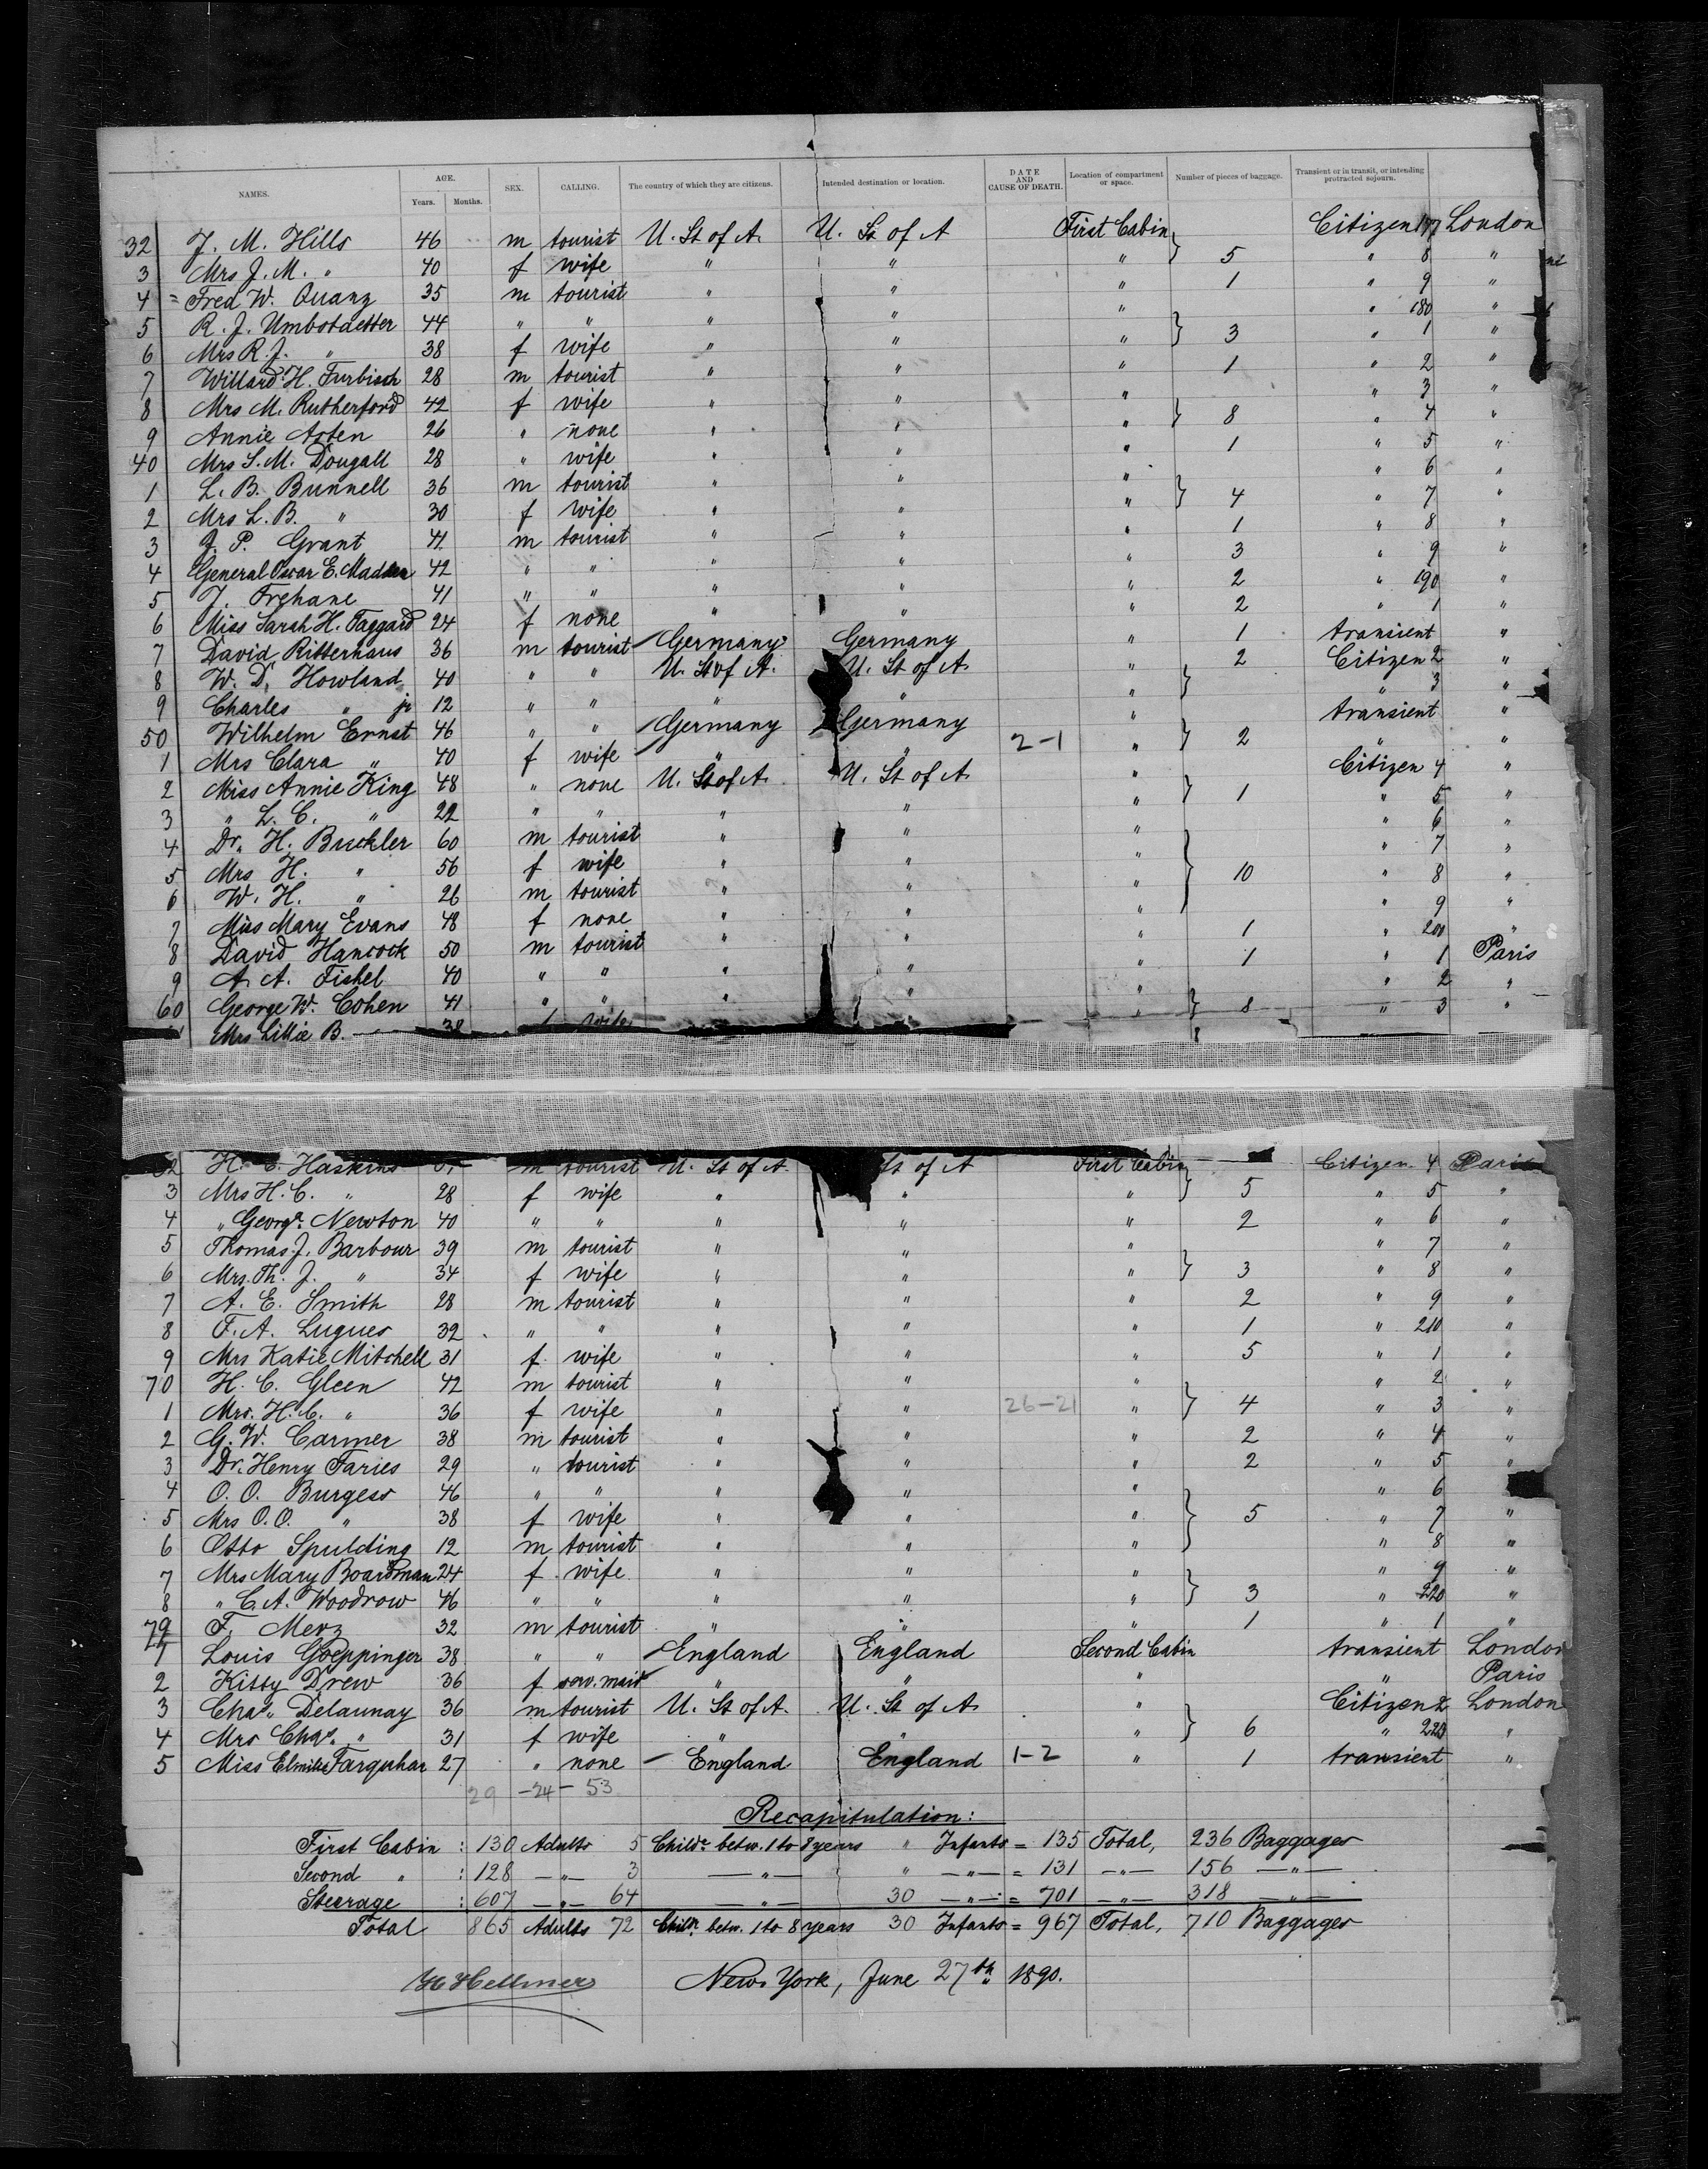 NAMES. AGE. Years. Months. SEX. CALLING. The country of which they are citizens. Intended destination or location. DATE AND CAUSE OF DEATH. Location of compartment or space. Number of pieces of baggage. Transient or in transit, or intending protracted sojourn.
32 J. M. Hills 46 m tourist U. St of A. U. St of A First Cabin Citizen 177 London
3 Mrs J. M. " 40 f wife " " " } 5 " 8 "
4 Fred W. Quanz 35 m tourist " " " 1 " 9 "
5 R. J. Umbstaetter 44 " " " " " " 180 "
6 Mrs R. J. " 38 f wife " " " } 3 " 1 "
7 Willard H. Furbisch 28 m tourist " " " 1 " 2 "
8 Mrs M. Rutherford 42 f wife " " " " 3 "
9 Annie Asten 26 " none " " " } 8 " 4 "
40 Mrs S. M. Dougall 28 " wife " " " 1 " 5 "
1 L. B. Bunnell 36 m tourist " " " " 6 "
2 Mrs L. B. " 30 f wife " " " } 4 " 7 "
3 J. P. Grant 41 m tourist " " " 1 " 8 "
4 General Oscar E. 42 " " " " " 3 " 9 "
5 41 " " " " " 2 " 190 "
6 Miss Sarah H. Taggard 24 f none " " " 2 " 1 "
7 David Ritterhaus 36 m tourist Germany Germany " 1 transient "
8 W. D. Howland 40 " " U. St of A. U. St of A. " 2 Citizen 2 "
9 Charles " jr 12 " " " " " } " 3 "
50 Wilhelm Ernst 46 " " Germany Germany " transient "
1 Mrs Clara " 40 f wife " " 2-1 " } 2 " "
2 Miss Annie King 48 " none U. St of A. U. St of A. " Citizen 4 "
3 " L. C. " 22 " " " " " } 1 " 5 "
4 Dr. H. Buckler 60 m tourist " " " " 6 "
5 Mrs H. " 56 f wife " " " " 7 "
6 W. H. " 26 m tourist " " " } 10 " 8 "
7 Miss Mary Evans 48 f none " " " " 9 "
8 David Hancock 50 m tourist " " " 1 " 200 "
9 A. A. Fishel 40 " " " " " 1 " 1 Paris
60 George W. Cohen 41 " " " " " " 2 "
Mrs Lillie B. 38 f wife } 8 " 3 "
H. C. Haskins m tourist U. St of A. St of A First Cabin Citizen 4 Paris
3 Mrs H. C. " 28 f wife " " " } 5 " 5 "
4 " George Newton 40 " " " " " 2 " 6 "
5 Thomas J. Barbour 39 m tourist " " " " 7 "
6 Mrs. Th. J. " 34 f wife " " " } 3 " 8 "
7 A. E. Smith 28 m tourist " " " 2 " 9 "
8 F. A. Lugues 32 " " " " " 1 " 210 "
9 Mrs Katie Mitchell 31 f wife " " " 5 " 1 "
70 H. C. Gleen 42 m tourist " " " " 2 "
1 Mrs. H. C. " 36 f wife " " 26-21 " } 4 " 3 "
2 G. W. Carmer 38 m tourist " " " 2 " 4 "
3 Dr. Henry Faries 29 " tourist " " " 2 " 5 "
4 O. O. Burgess 46 " " " " " " 6
5 Mrs O. O. " 38 f wife " " " } 5 " 7 "
6 Otto Spulding 12 m tourist " " " " 8 "
7 Mrs Mary Boardman 24 f wife " " " " 9 "
8 " C. A. Woodrow 46 " " " " " } 3 " 220 "
79 F. Merz 32 m tourist " " " 1 " 1 "
1 Louis Goeppinger 38 " " England England Second Cabin transient London
2 Kitty Drew 36 f serv. maid " " " " Paris
3 Chas. Delaunay 36 m tourist U. St of A. U. St of A. " Citizen 2 London
4 Mrs Chas. " 31 f wife " " " } 6 " 223 "
5 Miss Farquhar 27 " none England England 1-2 " 1 transient "
29 -24- 53
Recapitulation:
First Cabin : 130 Adults 5 Childr. betw. 1 to 8 years " Infants = 135 Total, 236 Baggages
Second " : 128 —"— 3 —"— " —"— = 131 —"— 156 —"—
Steerage : 607 —"— 64 —"— 30 —"— = 701 —"— 318 —"—
Total 865 Adults 72 Childr. betw. 1 to 8 years 30 Infants = 967 Total, 710 Baggages
H Hellmers New York, June 27th 1890.